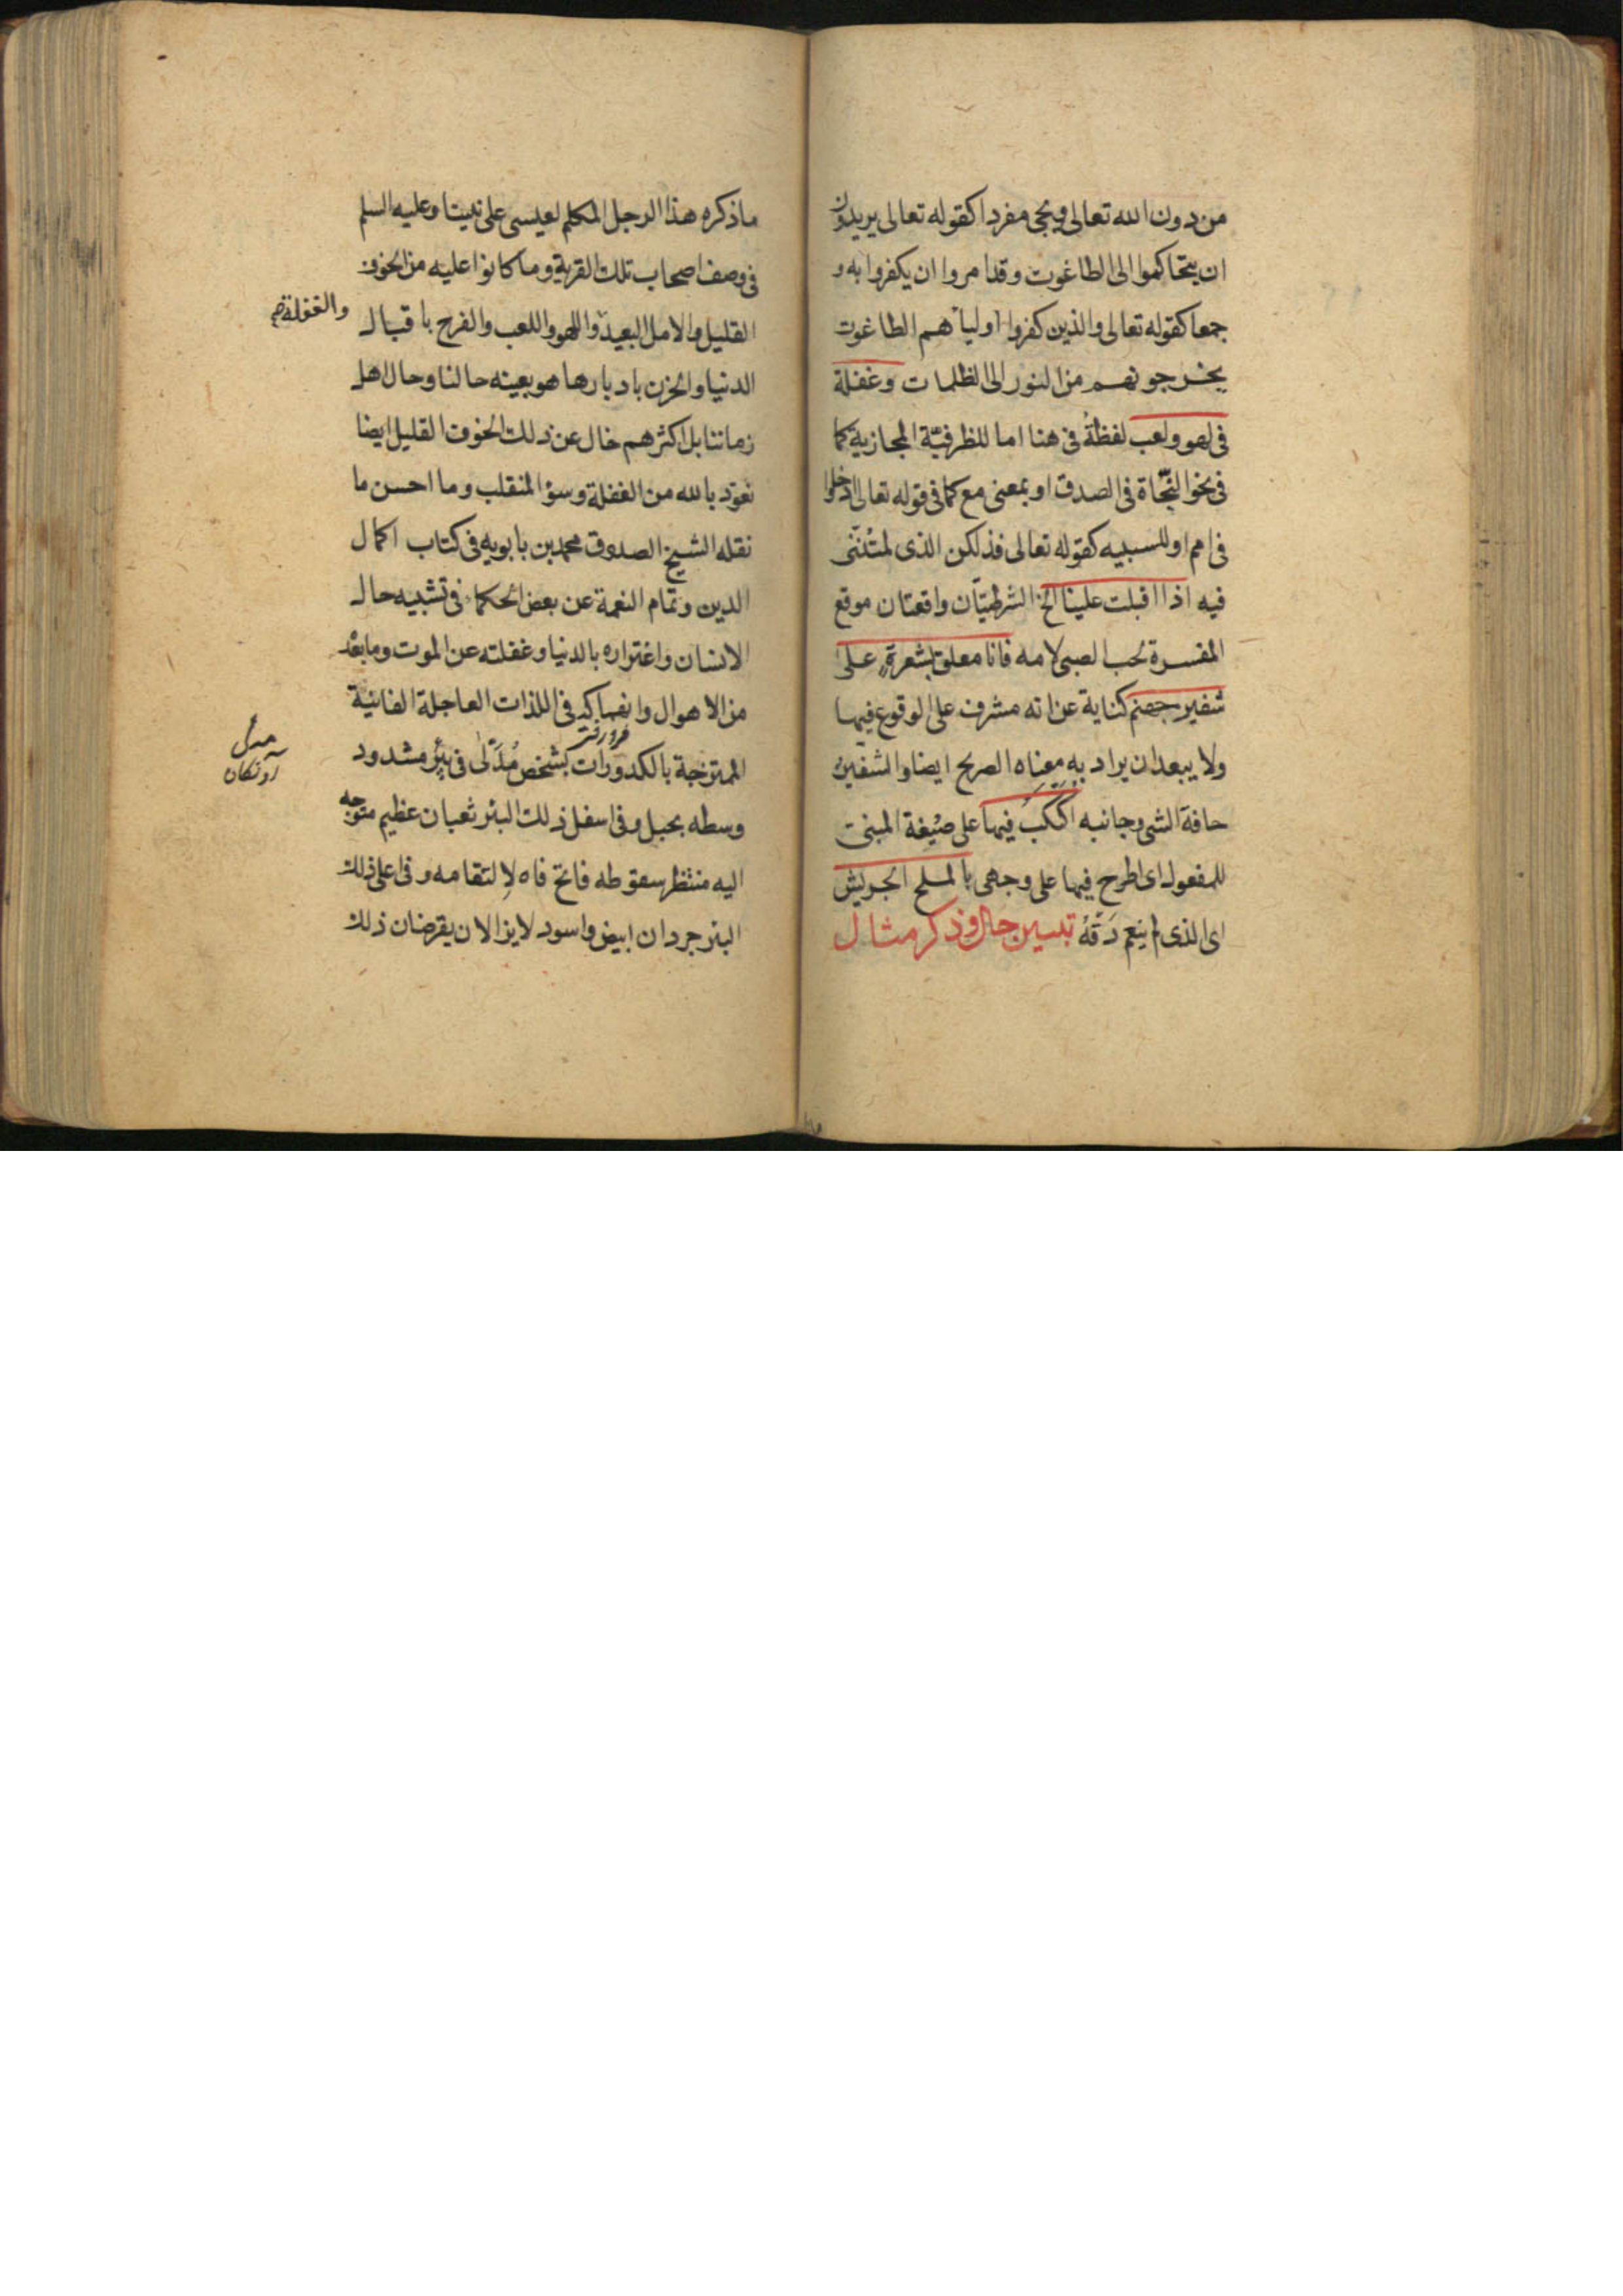 من دون الله تعالى ويجئ مفردا كقوله تعالى يريدون
ان يتحاكموا الى الطاغوت وقد امروا ان يكفروا به و
جمعا كقوله تعالى والذين كفروا اوليآهم الطاغوت
يخرجونهم من النور الى الظلمات وغفلة
فى لهو ولعب لفظة فى هنا اما للظرفيّة المجازية كما
فى نحو النّجاة فى الصدق او بمعنى مع كما فى قوله تعالى ادخلوا
فى امم او للسببيه كقوله تعالى فذلكن الذى لمتننى
فيه اذا اقبلت علينا الخ الشرطيتان واقعتان موقع
المفسرة لحب الصبى لامه فانا معلق بشعرة على
شفير جهنم كناية عن انه مشرف على الوقوع فيها
ولا يبعد ان يراد به معناه الصريح ايضا والشفير
حافة الشى وجانبه اكبكب فيها على صيغة المبنى
للمفعول اى اطرح فيها على وجهى بالملح الجريش
اى الذى لم ينعم دَقّهُ تبيين حال وذكر مثال
ماذكره هذا الرجل المكلم لعيسى على نبينا وعليه السلم
فى وصف اصحاب تلك القرية وما كانوا عليه من الخوف
القليل والامل البعيد واللهو واللعب والفرح باقبال
والغفلة صح
الدنيا والحزن بادبارها هو بعينه حالنا وحال اهل
زماننا بل اكثرهم خال عن ذلك الخوف القليل ايضا
نعوذ بالله من الغفلة وسؤ المنقلب وما احسن ما
نقله الشيخ الصدوق محمد بن بابويه فى كتاب اكمال
الدين وتمام النعمة عن بعض الحكماء فى تشبيه حال
الانسان واغتراره بالدنيا وغفلته عن الموت وما بعده
من الاهوال وانهماكه فى اللذات العاجلة الفانية
الممتزجة بالكدورات كشخص مُدَلّى فى بئر مشدود
آونكان
وسطه بحبل وفى اسفل ذلك البئر ثعبان عظيم متوجه
اليه منتظر سقوطه فاتح فاه لالتقامه وفى اعلى ذلك
البئر جردان ابيض واسود لا يزالان يقرضان ذلك